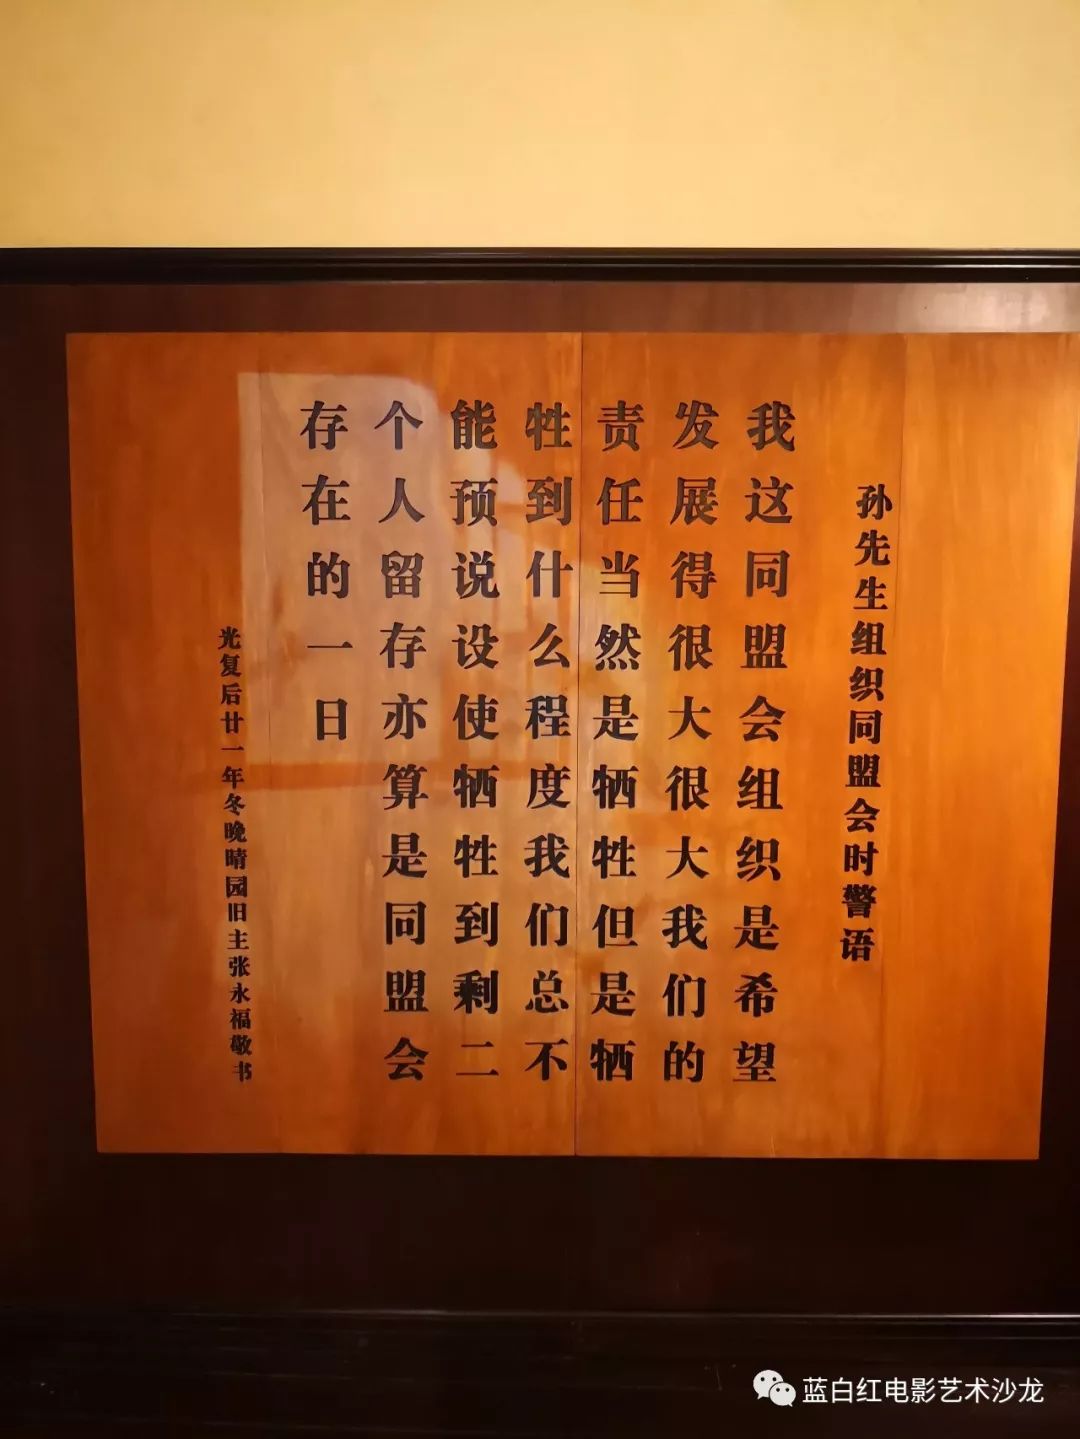 孙先生组织同盟会时警语
我这同盟会组织是希望
发展得很大很大我们的
责任当然是牺牲但是牺
牲到什么程度我们总不
能预说设使牺牲到剩二
个人留存亦算是同盟会
存在的一日
光复后廿一年冬晚晴园旧主张永福敬书
蓝白红电影艺术沙龙